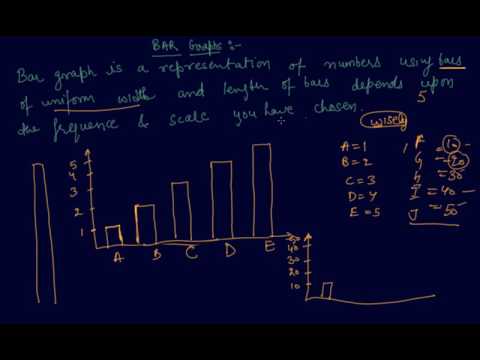 BAR Graphs :-
Bar graph is a representation of numbers using bars
of uniform width and length of bars depends upon
5
the frequence & scale you have chosen.
wisely
A = 1
B = 2
C = 3
D = 4
E = 5
F = 10
G = 20
H = 30
I = 40
J = 50
5
4
3
2
1
A B C D E
50
40
30
20
10